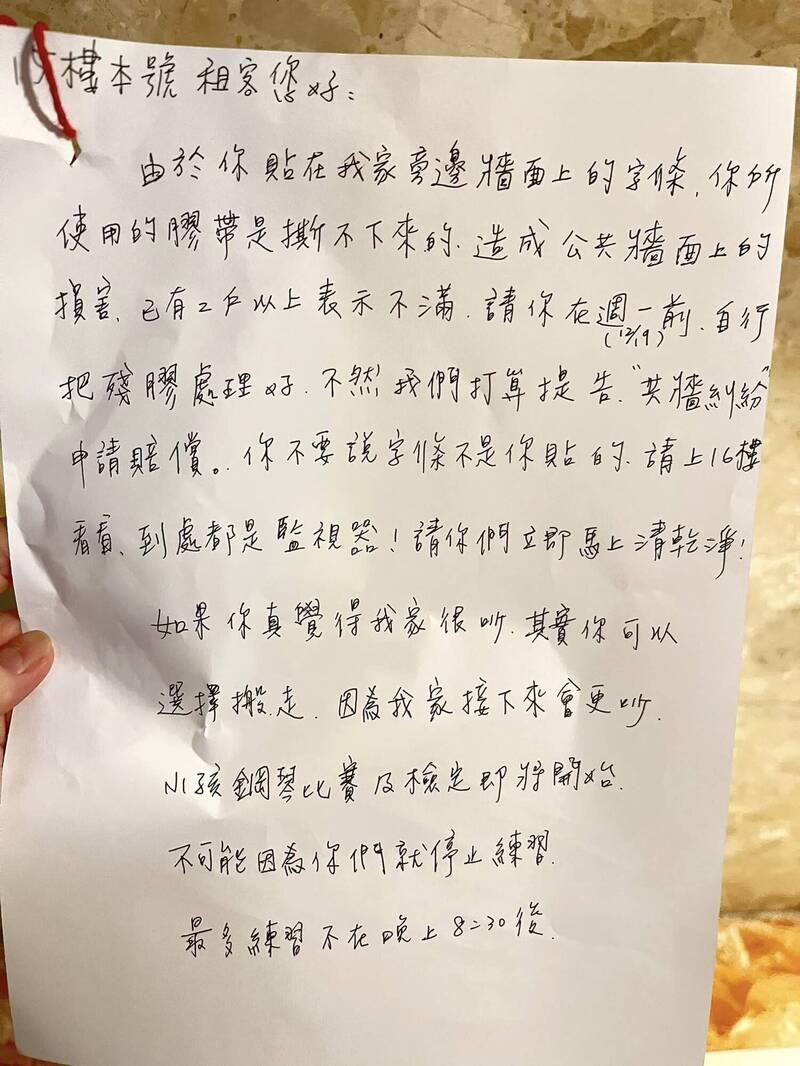 15樓本號 租客您好：
由於你貼在我家旁邊牆面上的字條，你所
使用的膠帶是撕不下來的、造成公共牆面上的
損害、已有2戶以上表示不滿、請你在週一前、自行
(12/19)
把殘膠處理好、不然我們打算提告"共牆糾紛"
申請賠償。你不要說字條不是你貼的、請上16樓
看看、到處都是監視器！請你們立即馬上清乾淨！
如果你真覺得我家很吵、其實你可以
選擇搬走、因為我家接下來會更吵、
小孩鋼琴比賽及檢定即將開始、
不可能因為你們就停止練習、
最多練習不在晚上8:30後、